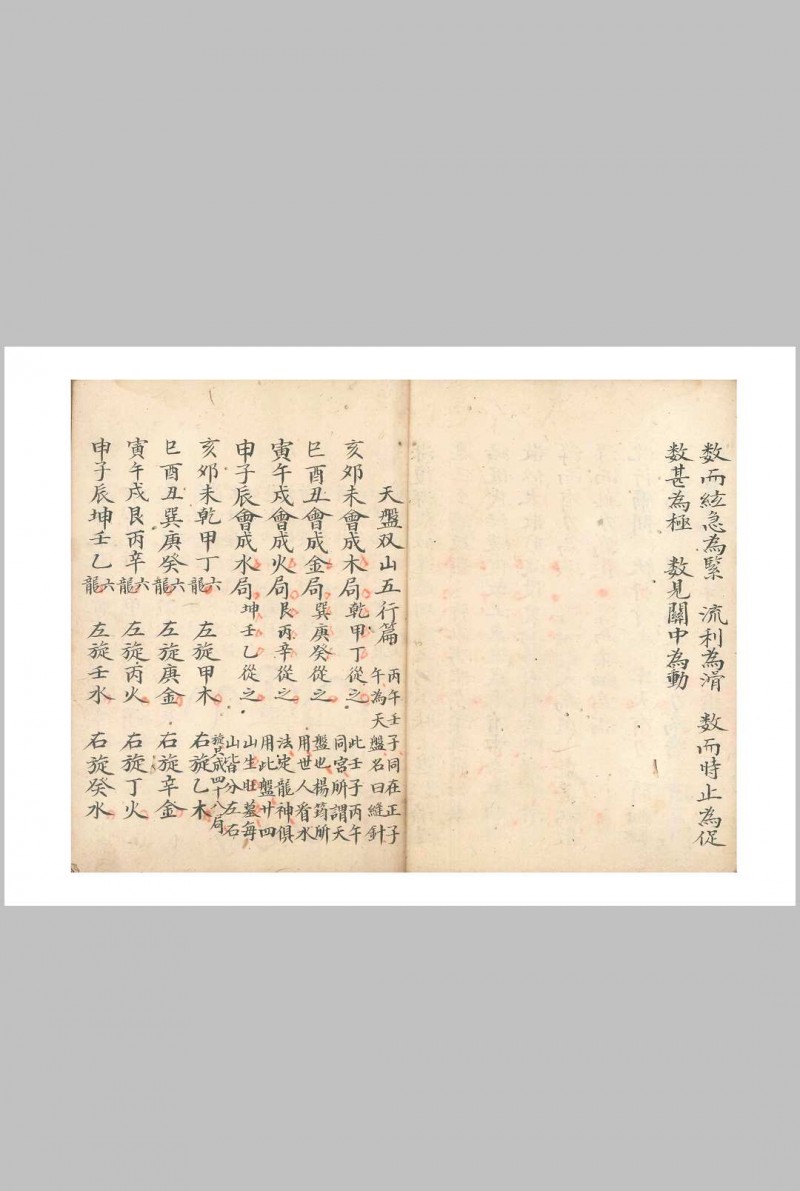 数而絃急為緊 流利為滑 数而時止為促
数甚為極 数見關中為動
天盤双山五行篇 丙午壬子同在正子
午為天盤名曰縫針
亥卯未會成木局 乾甲丁從之 此壬子丙午
同宮所謂天
巳酉丑會成金局 巽庚癸從之 盤也楊筠所
用世人看水
寅午戌會成火局 艮丙辛從之 法定龍神俱
用此盤廿四
申子辰會成水局 坤壬乙從之 山生旺墓每
山皆分左右
揔只成四十八局
亥卯未乾甲丁六龍 左旋甲木 右旋乙木
巳酉丑巽庚癸六龍 左旋庚金 右旋辛金
寅午戌艮丙辛六龍 左旋丙火 右旋丁火
申子辰坤壬乙六龍 左旋壬水 右旋癸水